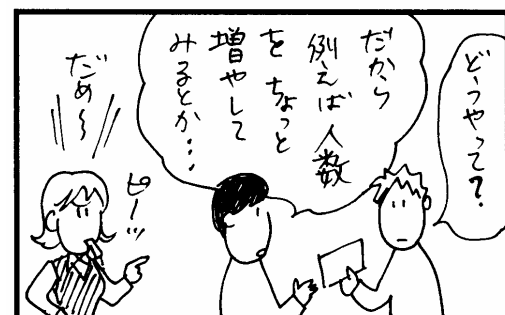 どうやって？
だから
例えば人数
をちょっと
増やして
みるとか・・・
だめ〜
ピーッ